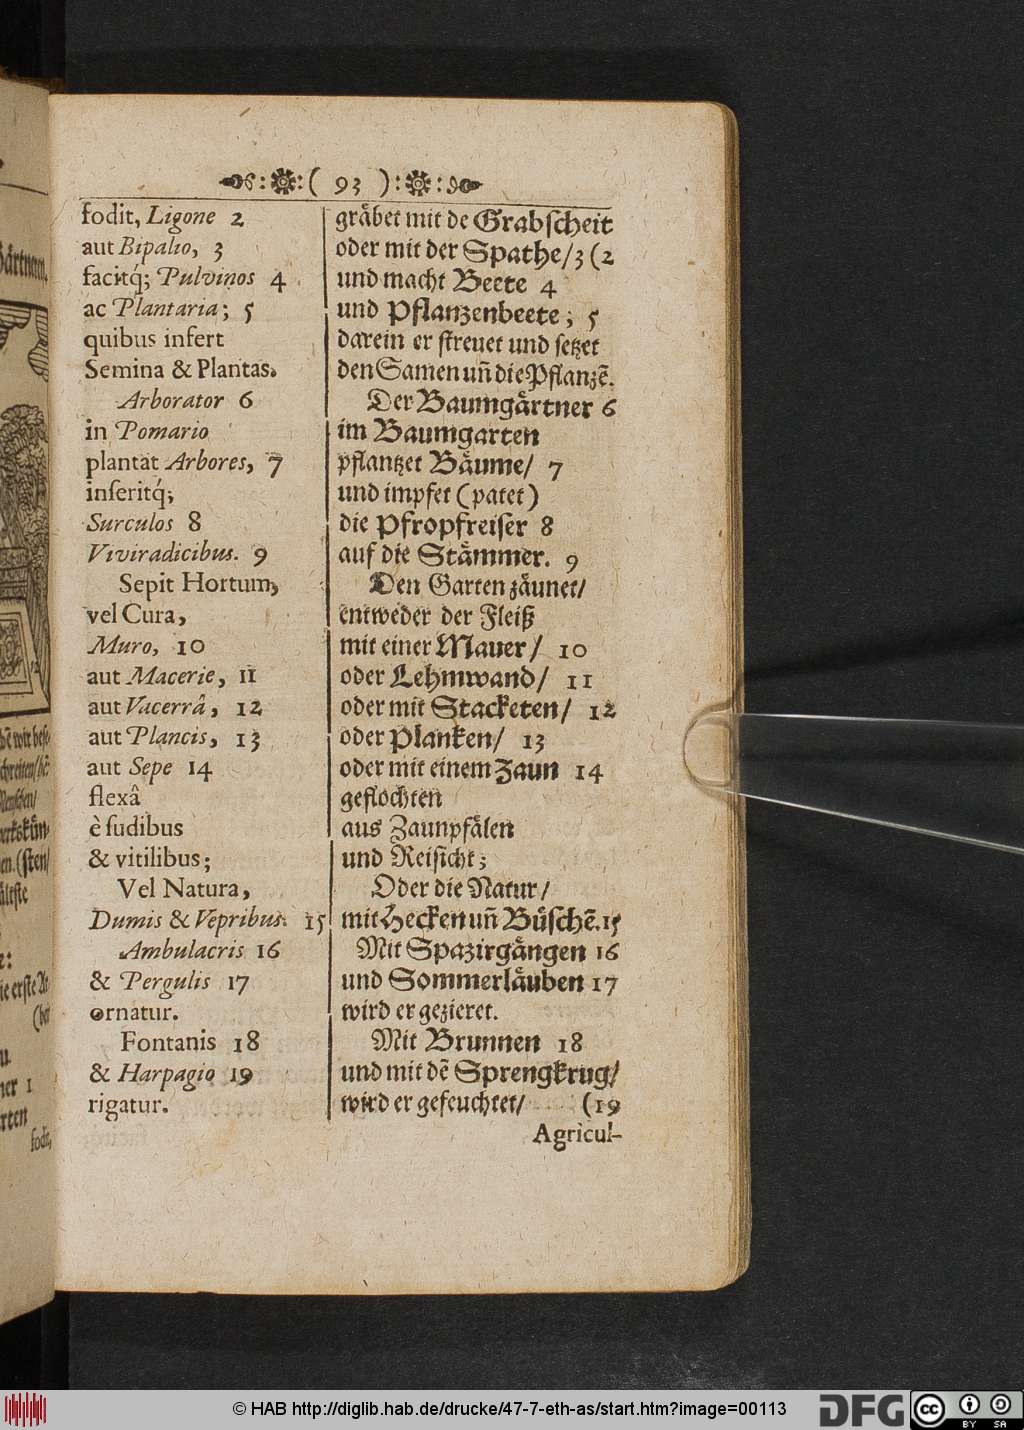 ( 93 )
fodit, Ligone 2
aut Bipalio, 3
facitq́; Pulvinos 4
ac Plantaria; 5
quibus infert
Semina & Plantas.
Arborator 6
in Pomario
plantat Arbores, 7
inſeritq́;
Surculos 8
Viviradicibus. 9
Sepit Hortum,
vel Cura,
Muro, 10
aut Macerie, 11
aut Vacerrâ, 12
aut Plancis, 13
aut Sepe 14
flexâ
è ſudibus
& vitilibus;
Vel Natura,
Dumis & Vepribus. 15
Ambulacris 16
& Pergulis 17
ornatur.
Fontanis 18
& Harpagio 19
rigatur.
gräbet mit de Grabſcheit
oder mit der Spathe/ 3 (2
und macht Beete 4
und Pflanzenbeete; 5
darein er ſtreuet und ſetzet
den Samen uñ die Pflanzẽ.
Der Baumgärtner 6
im Baumgarten
pflantzet Bäume/ 7
und impfet (patet)
die Pfropfreiſer 8
auf die Stämmer. 9
Den Garten zäunet/
entweder der Fleiß
mit einer Mauer/ 10
oder Lehmwand/ 11
oder mit Stacketen/ 12
oder Planken/ 13
oder mit einem Zaun 14
geflochten
aus Zaunpfälen
und Reiſicht;
Oder die Natur/
mit Hecken uñ Büſchẽ. 15
Mit Spazirgängen 16
und Sommerläuben 17
wird er gezieret.
Mit Brunnen 18
und mit dẽ Sprengkrug/
wird er gefeuchtet/ (19
Agricul-
© HAB http://diglib.hab.de/drucke/47-7-eth-as/start.htm?image=00113
DFG
cc BY SA